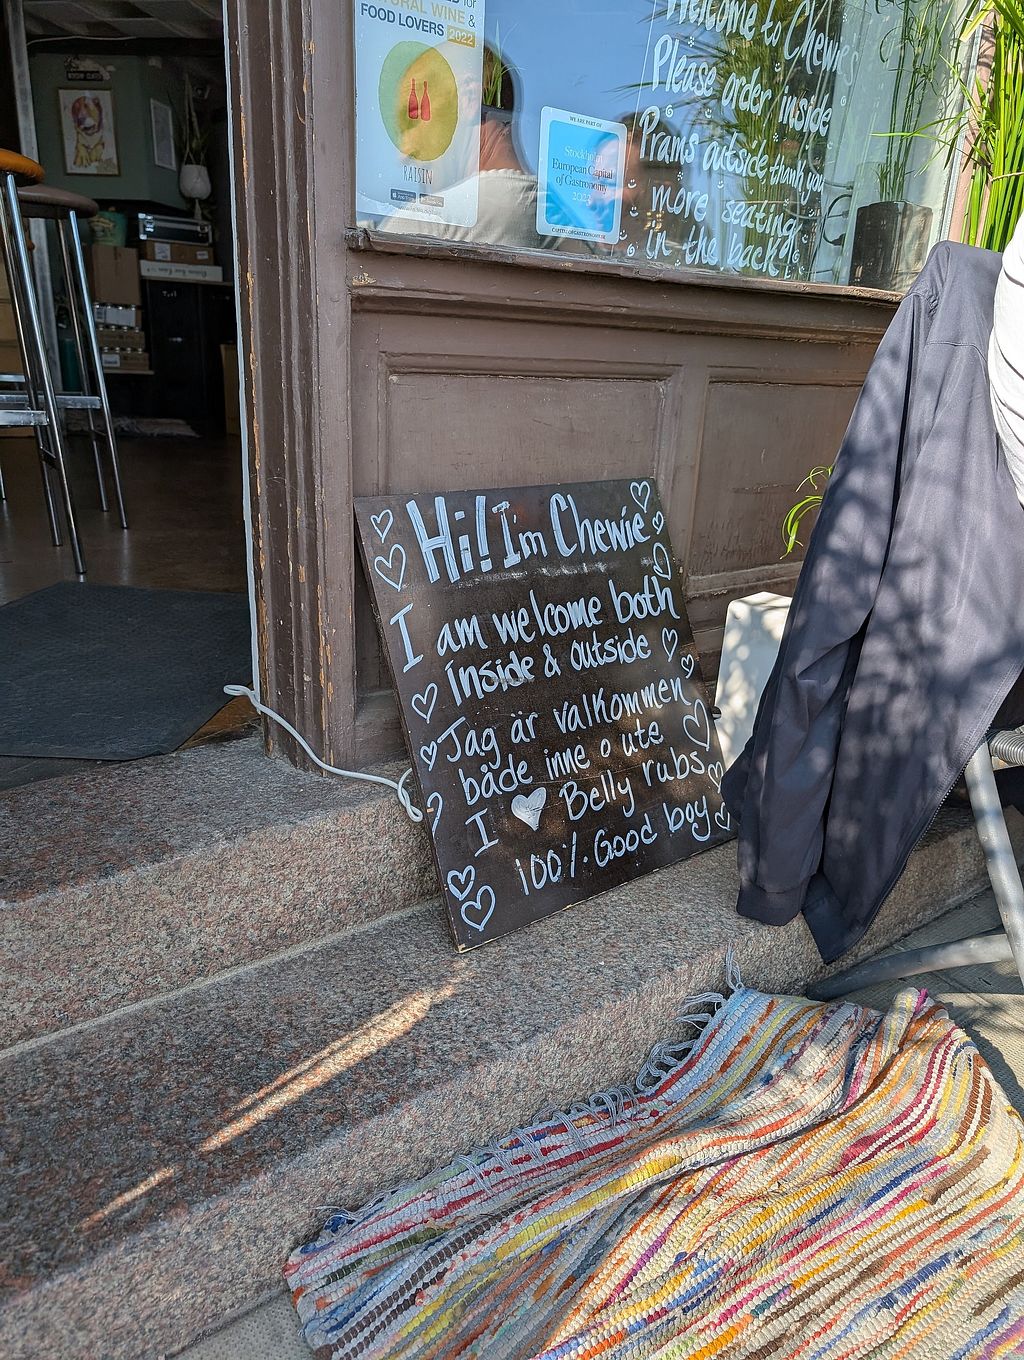 for
NATURAL WINE &
FOOD LOVERS 2022
RAISIN
WE ARE PART OF
Stockholm
European Capital
of Gastronomy
CAPITALOFGASTRONOMY.SE
Welcome to Chewie's
Please order inside
Prams outside thank you
more seating
in the back
Hi! I'm Chewie
I am welcome both
inside & outside
Jag är välkommen
både inne o ute
I Belly rubs
100% Good boy